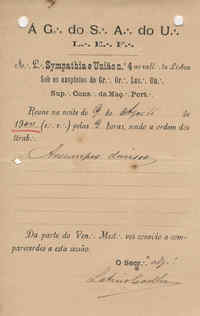 Á G∴ do S∴ A∴ do U∴
L∴ E∴ F∴
A∴ L∴ Sympathia e União n.º 4 ao val∴ de Lisboa
Sob os auspicios do Gr∴ Or∴ Lus∴ Un∴
Sup∴ Cons∴ da Maç∴ Port∴
Reune na noite de 9 de
(e∴ v∴) pelas horas, sendo a ordem dos
trab∴
Assumptos diversos
Da parte do Ven∴ Mest∴ vos convido a com-
parecerdes a esta sessão.
O Secr∴